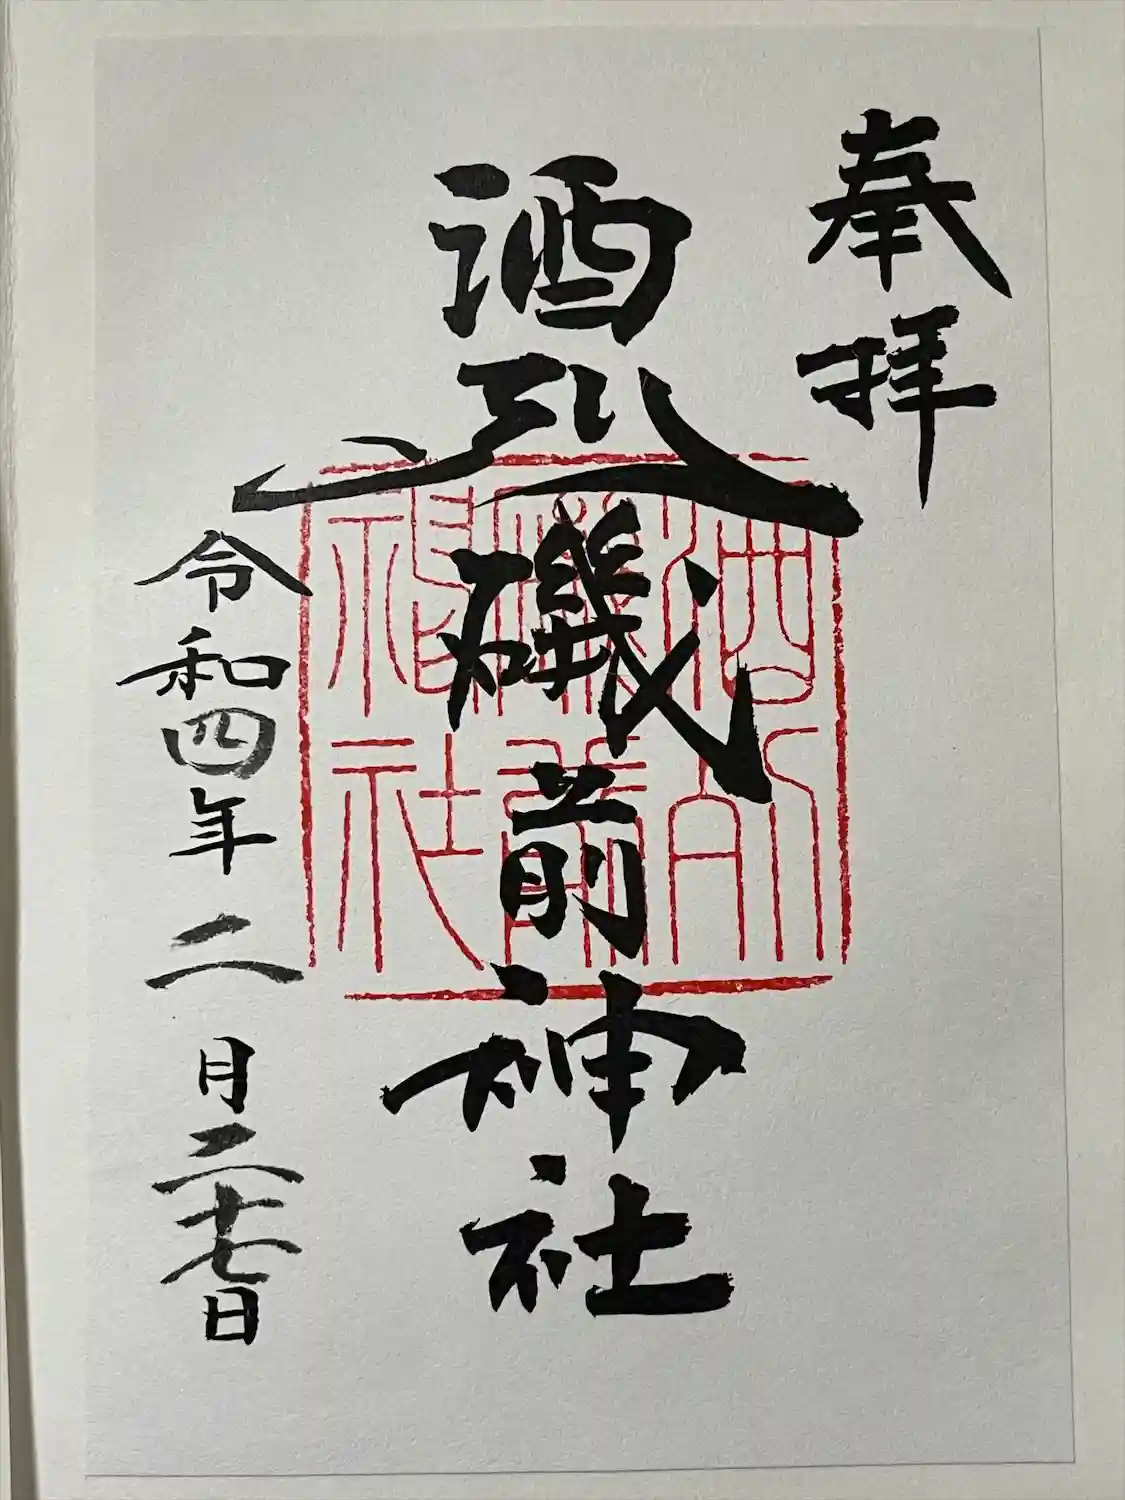 奉拝
酒列磯前神社
令和四年二月二十七日
酒列
磯前
神社